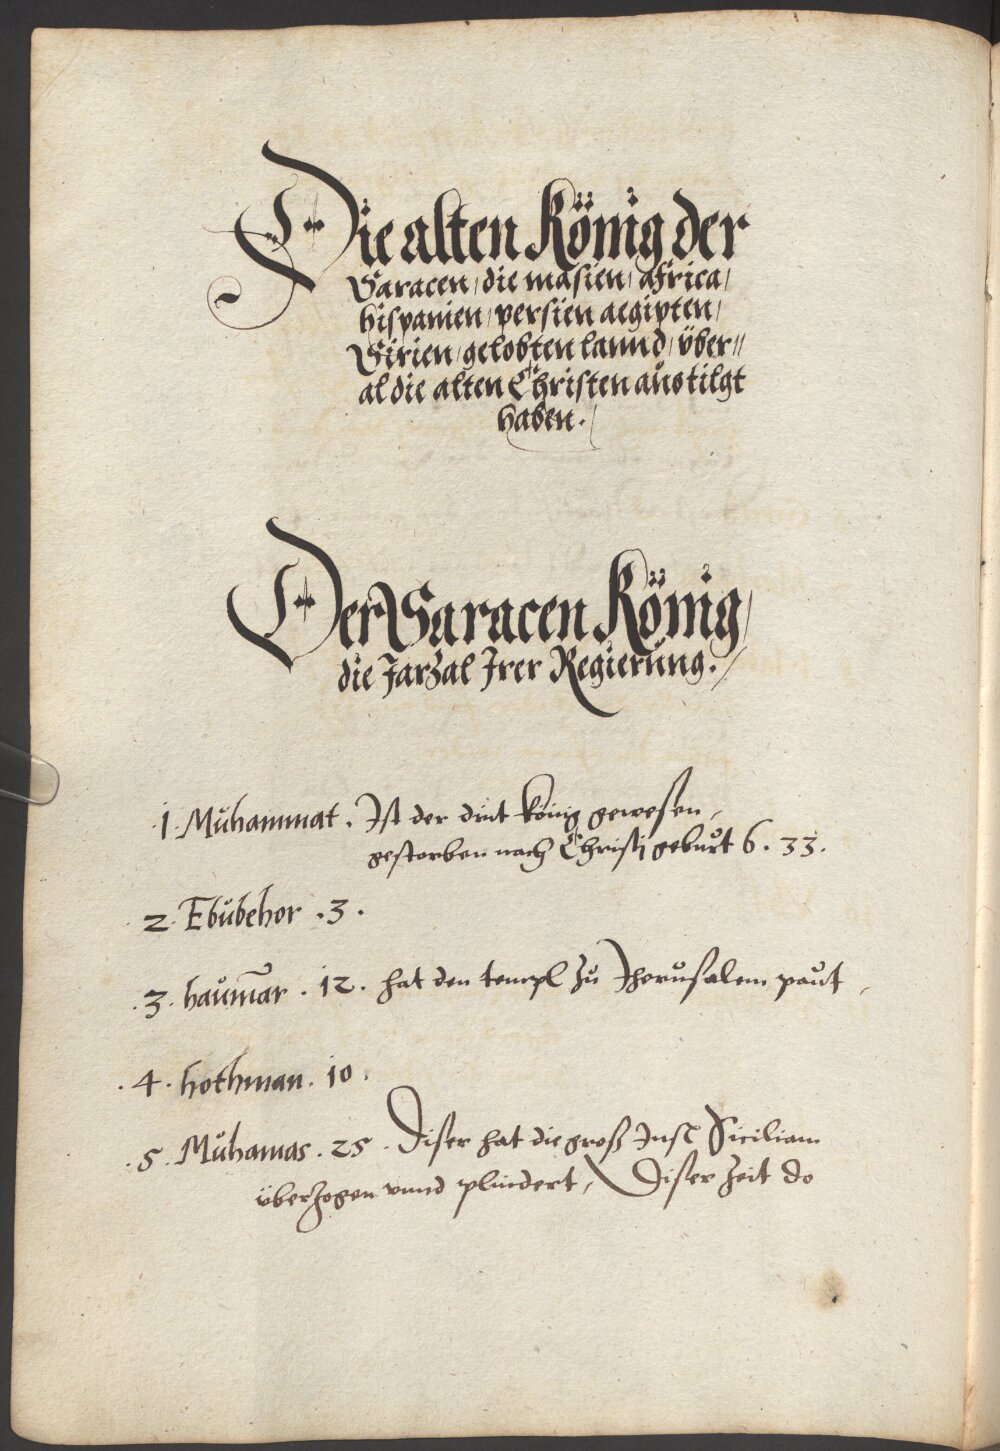 Die alten König der
Saracen / die in asien / africa /
hispanien / persien aegipten /
Sirien / gelobten lannd / über//
al die alten Christen austilgt
haben ./
Der Saracen König /
die Jarzal Irer Regierung ./
.1. Muhammat . Ist der drit könig gewesen,
gestorben nach Christi geburt 6 . 33 .
. 2 . Ebubehor . 3 .
. 3 . haumar . 12 . hat den templ zu Jherusalem paut ,
. 4 . hothman . 10 .
. 5 . Muhamas . 25 . Diser hat die groß Insl Siciliam
überzogen vnnd plindert , Diser zeit do